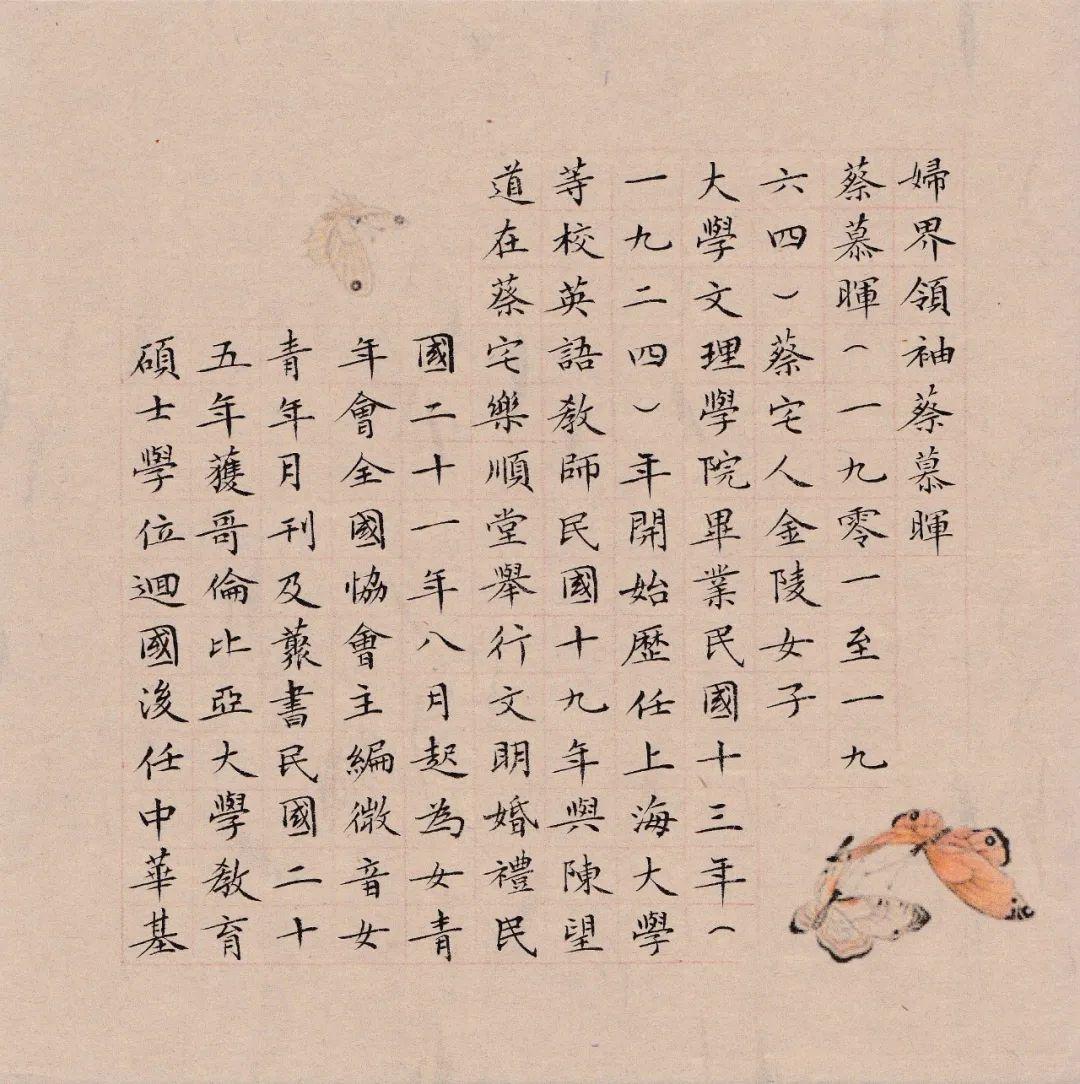 婦界領袖蔡慕暉
蔡慕暉（一九零一至一九
六四）蔡宅人金陵女子
大學文理學院畢業民國十三年（
一九二四）年開始歷任上海大學
等校英語教師民國十九年與陳望
道在蔡宅樂順堂舉行文明婚禮民
國二十一年八月起為女青
年會全國恊會主編微音女
青年月刊及叢書民國二十
五年獲哥倫比亞大學教育
碩士學位迴國後任中華基